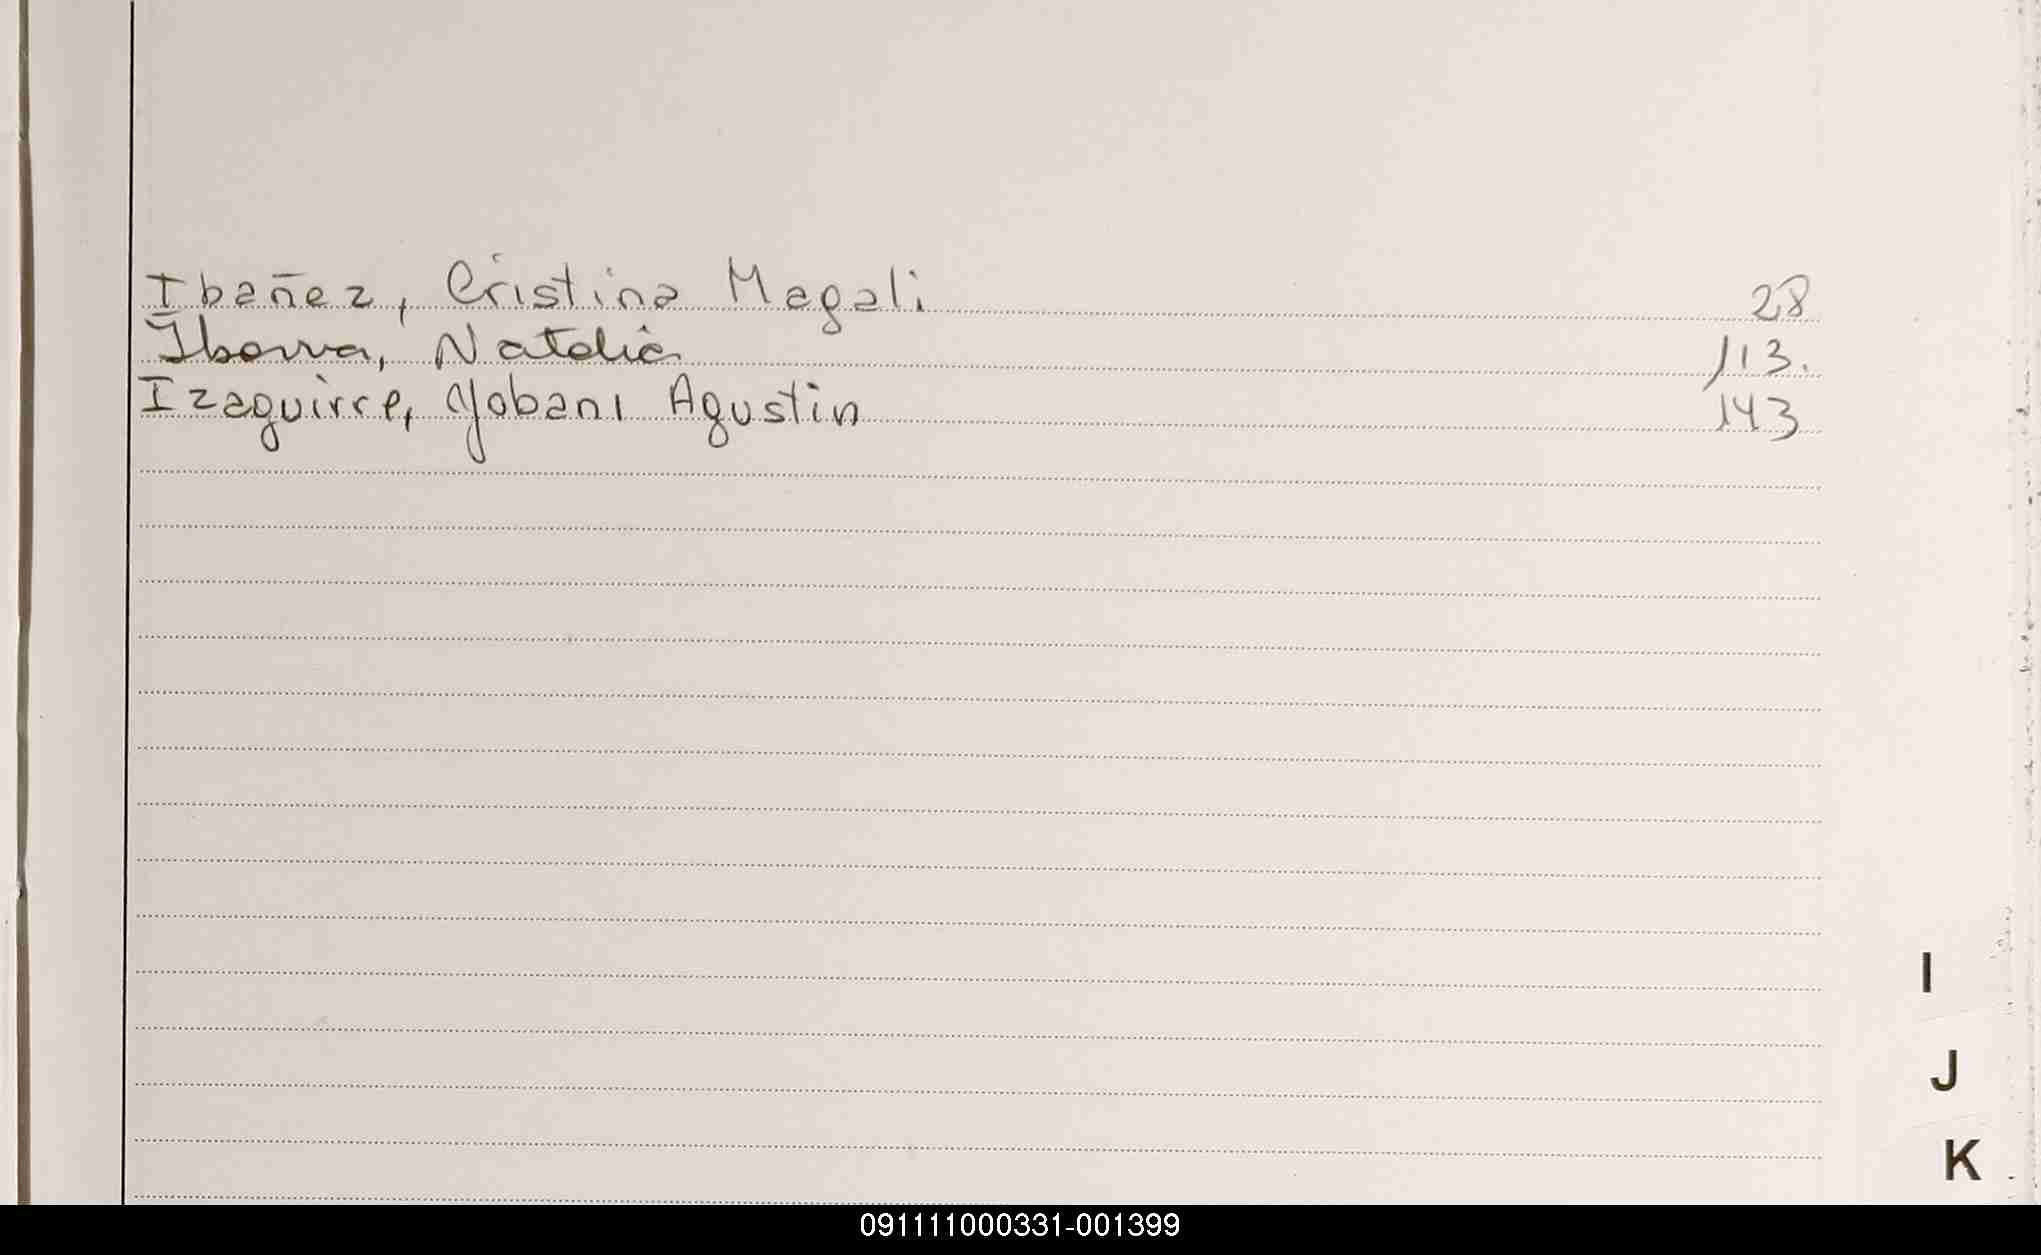 Ibañez, Cristina Magali 28
Ibarra, Natalia 113.
Izaguirre, Yobani Agustin 143
I
J
K
091111000331-001399